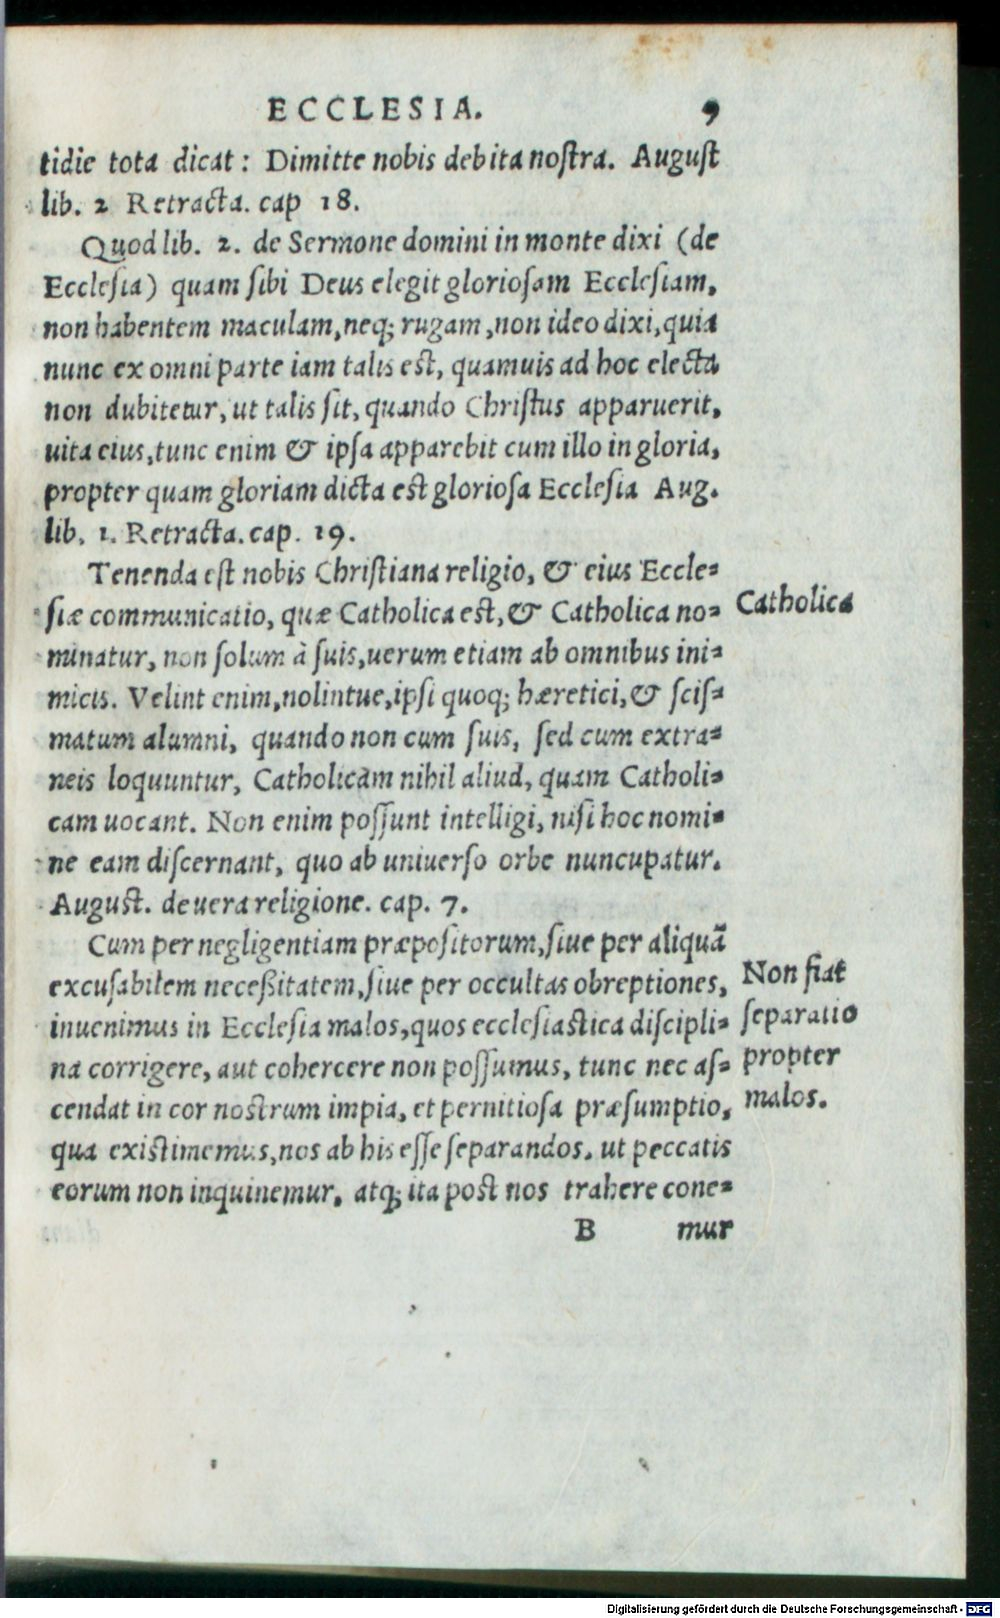 ECCLESIA. 9
tidie tota dicat: Dimitte nobis debita nostra. August
lib. 2 Retracta. cap 18.
Quod lib. 2. de Sermone domini in monte dixi (de
Ecclesia) quam sibi Deus elegit gloriosam Ecclesiam,
non habentem maculam, neq; rugam, non ideo dixi, quia
nunc ex omni parte iam talis est, quamuis ad hoc electa
non dubitetur, ut talis sit, quando Christus apparuerit,
uita eius, tunc enim & ipsa apparebit cum illo in gloria,
propter quam gloriam dicta est gloriosa Ecclesia Aug.
lib. 1. Retracta. cap. 19.
Tenenda est nobis Christiana religio, & eius Eccle-
siæ communicatio, quæ Catholica est, & Catholica no-
minatur, non solum à suis, uerum etiam ab omnibus ini-
micis. Velint enim, nolintue, ipsi quoq; hæretici, & scis-
matum alumni, quando non cum suis, sed cum extra-
neis loquuntur, Catholicam nihil aliud, quam Catholi-
cam uocant. Non enim possunt intelligi, nisi hoc nomi-
ne eam discernant, quo ab uniuerso orbe nuncupatur.
August. de uera religione. cap. 7.
Cum per negligentiam præpositorum, siue per aliquã
excusabilem neceßitatem, siue per occultas obreptiones,
inuenimus in Ecclesia malos, quos ecclesiastica discipli-
na corrigere, aut cohercere non possumus, tunc nec as-
cendat in cor nostrum impia, et pernitiosa præsumptio,
qua existimemus, nos ab his esse separandos. ut peccatis
eorum non inquinemur, atq; ita post nos trahere cone-
B mur
Catholica
Non fiat
separatio
propter
malos.
Digitalisierung gefördert durch die Deutsche Forschungsgemeinschaft - DFG